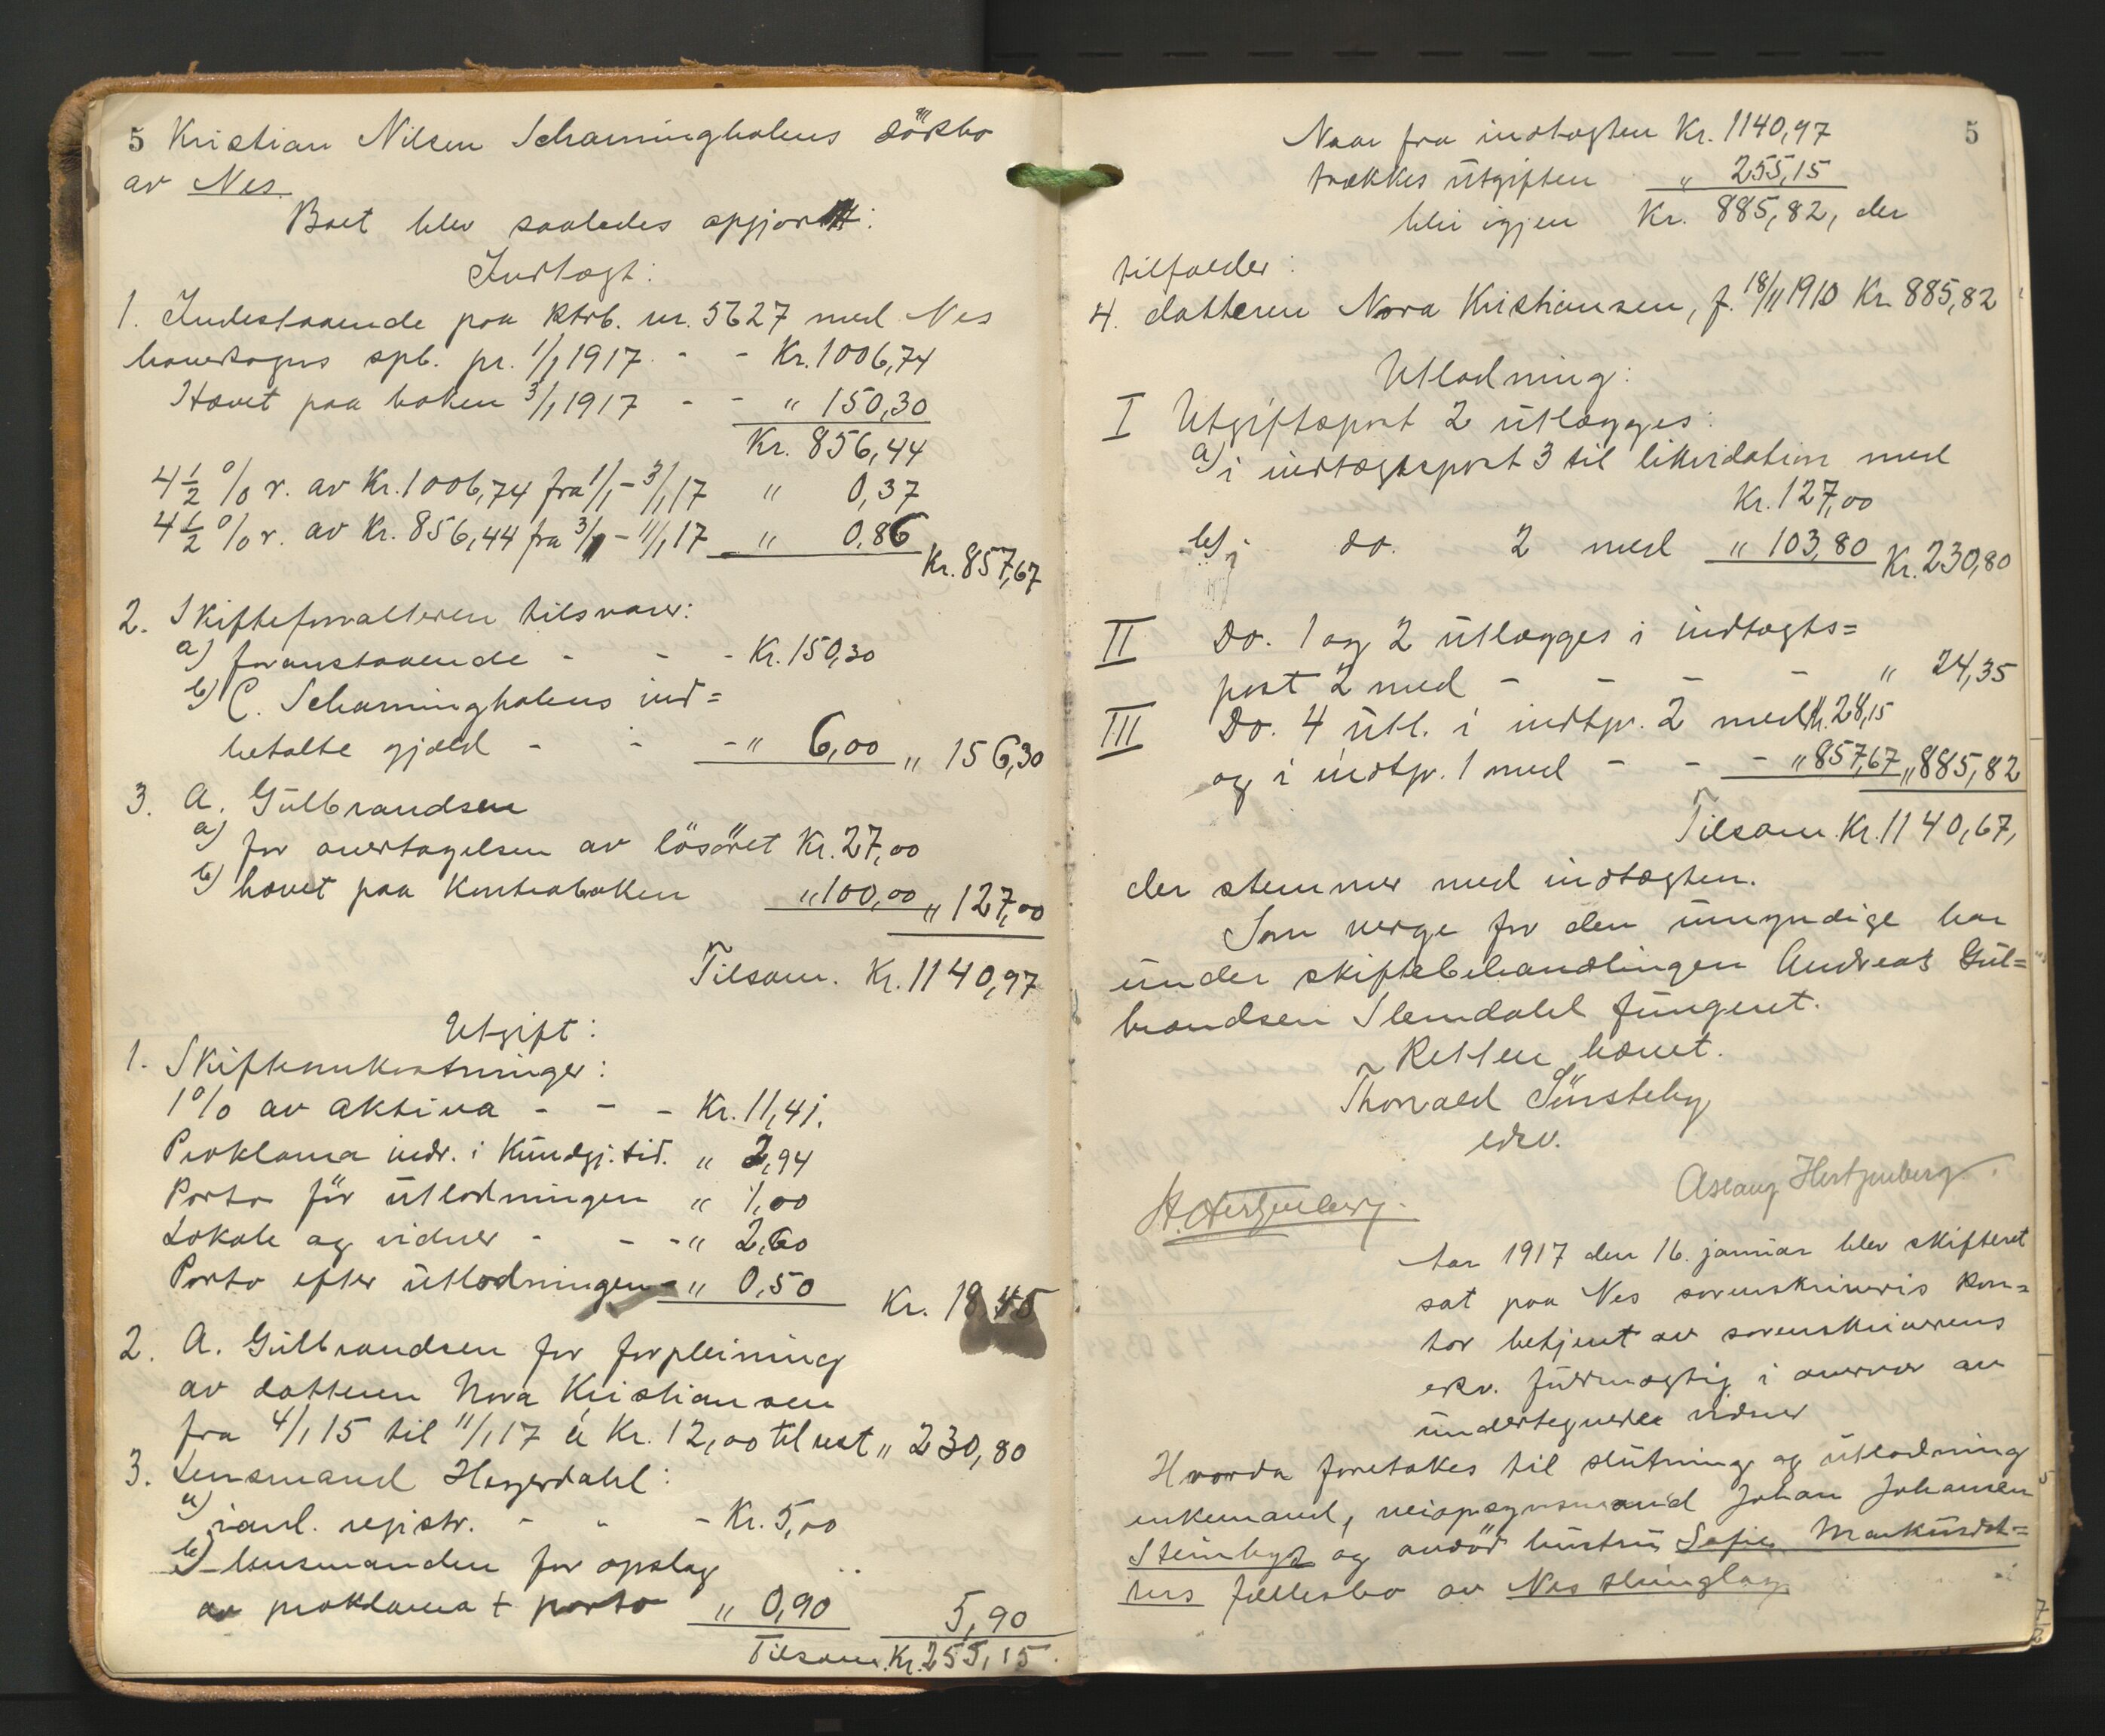 5 Kristian Nilsen Scharningholens dödsbo
av Nes.
Boet blev saaledes opgjort:
Indtægt:
1. Indestaaende paa ktrb. nr. 5627 med Nes
hovedsogns spb. pr. 1/1 1917 - - Kr. 1006,74
Hævet paa boken 3/1 1917 - - " 150,30
Kr. 856,44
4 1/2 % r. av Kr. 1006,74 fra 1/1 - 3/1 17 " 0,37
4 1/2 % r. av Kr. 856,44 fra 3/1 - 11/1 17 " 0,86
Kr. 857,67
2. Skifteforvalteren tilsvarer:
a) foranstaaende - - - Kr. 150,30
b) C. Scharningholens ind=
betalte gjæld - - - " 6,00 " 156,30
3. A. Gulbrandsen
a) for overtagelsen av lösöret Kr. 27,00
b) hævet paa Kontraboken " 100,00 " 127,00
Tilsam. Kr. 1140,97
Utgift:
1. Skifteomkostninger:
1% av aktiva - - - Kr. 11,41.
Proklama indr. i Kundgj. tid. " 2,94
Porto för utlodningen " 1,00
Lokale og vidner - - - " 2,60
Porto efter utlodningen - " 0,50
Kr. 18,45
2. A. Gulbrandsen for forpleining
av datteren Nora Kristiansen
fra 4/1 15 til 11/1 17 à Kr. 12,00 til rest " 230,80
3. Lensmand Heyerdahl:
a) ianl. registr. - - - Kr. 5,00
b) lensmanden for opslag
av proklama + porto " 0,90 5,90
Tilsam. Kr. 255,15.
5
Naar fra indtægten Kr. 1140,97
trækkes utgiften " 255,15
blir igjen Kr. 885,82, der
tilfalder:
4. datteren Nora Kristiansen, f. 18/11 1910 Kr 885,82
Utlodning:
I Utgiftspost 2 utlægges:
a) i indtægtspost 3 til likvidation med
Kr. 127,00
b) i do. 2 med " 103,80 Kr. 230,80
II Do. 1 og 2 utlægges i indtægts=
post 2 med - - - - " 24,35
III Do. 4 utl. i indtp. 2 med Kr. 28,15
og i indtp. 1 med - - - " 857,67 " 885,82
Tilsam. Kr. 1140,67,
der stemmer med indtægten.
Som verge for den umyndige har
under skiftebehandlingen Andreas Gul=
brandsen Slemdahl fungert.
Retten hævet.
Thorvald Sönsteby
edsv.
Aslaug Hertzenberg.
H. Hertzenberg.
Aar 1917 den 16. januar blev skifteret
sat paa Nes sorenskriveris kon=
tor betjent av sorenskriverens
edsv. fuldmægtig i overvær av
undertegnede vidner
Hvorda foretokes til slutning og utlodning
enkemand, veiopsynsmand Johan Johansen
Steinbyd og avdöd hustru Sofie Markusdat=
ters fællesbo av Nes